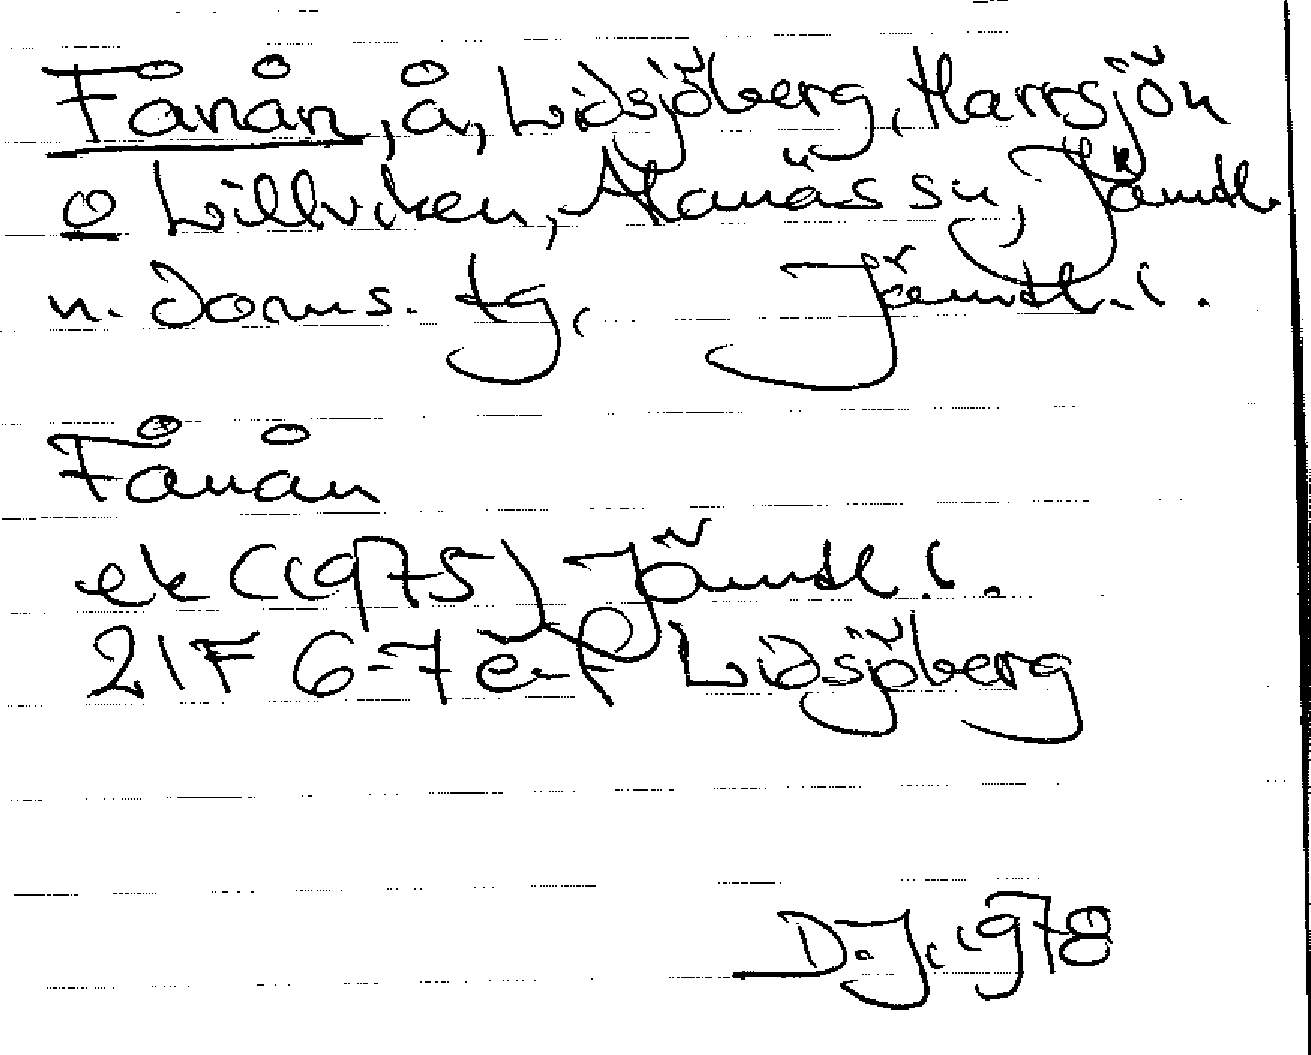 Fånån, å, Lidsjöberg, Harrsjön
o Lillviken, Alanäs sn, Jämtl.
n. doms. tg, Jämtl. l.
Fånån
ek (1975) Jämtl. l.
21F 6-7 e-f Lidsjöberg
D.J. 1978